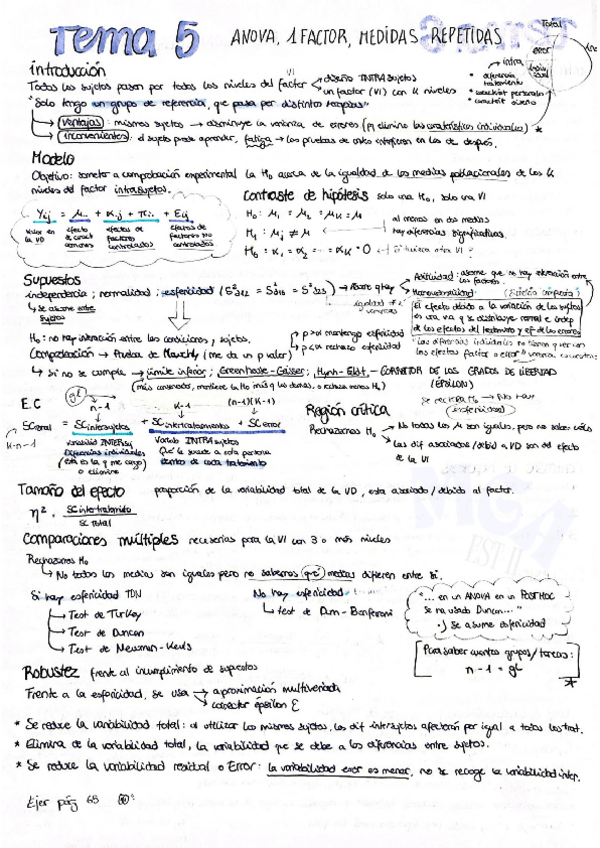 Tema 5 ANOVA, 1 FACTOR, MEDIDAS REPETIDAS
Total
error
intra
• diferencia tratamiento
• caract personales
introducción
Todos los sujetos pasan por todos los niveles del factor
VI
diseño INTRAsujetos
un factor (VI) con K niveles
"Solo tengo un grupo de referencia, que pasa por distintas terapias"
Ventajas: mismos sujetos → disminuye la varianza de errores (pq elimino las características individuales) *
Inconvenientes: el sujeto puede aprender, fatiga → las pruebas de antes interfieren en las de después.
Modelo
Objetivo: someter a comprobación experimental la H0 acerca de la igualdad de las medias poblacionales de los K
niveles del factor intrasujetos.
Contraste de hipótesis solo una H0, solo una VI
Valor en la VD
efecto de const comunes
efectos de factores controlados
efectos de factores no controlados
al menos en dos medias
hay diferencias significativas.
Supuestos
independencia; normalidad; esfericidad
↳ se asume entre sujetos
igualdad de σ² varianzas
Aditividad: asume que no hay interacción entre los factores.
El efecto debido a la variación de los sujetos
es una v.a. q se distribuye normal e indep
de los efectos del tratamiento y ef de los errores
H0: no hay interacción entre las condiciones y sujetos.
p > α mantengo esfericidad
p < α rechazo esfericidad
Comprobación → Prueba de Mauchly (me da un p valor)
↳ si no se cumple → Límite inferior; Greenhouse-Geisser; Hynh-Eldt. - CORRECTOR DE LOS GRADOS DE LIBERTAD
(ÉPSILON)
E.C
gl
n-1
K-1
(n-1)(K-1)
SC total = SC intersujetos + SC intertratamientos + SC error
K·n-1
Variabilidad INTERsuj
Diferencias individuales
(esta es la q me cargo)
o elimino
Variab INTRAsujetos
Qué le sucede a cada persona
dentro de cada tratamiento
Región crítica
Rechazamos H0
No todas las μ son iguales, pero no saber cuáles
Las dif asociadas/debid a VD son del efecto
de la VI
Tamaño del efecto proporción de la variabilidad total de la VD, esta asociado/debido al factor.
η² = SC intertratamiento
SC total
Comparaciones múltiples necesarias para la VI con 3 o más niveles
Rechazamos H0
↳ No todas las medias son iguales pero no sabemos qué medias difieren entre si.
Si hay esfericidad TDN
→ Test de Turkey
→ Test de Duncan
→ Test de Newman-Keuls
No hay esfericidad
↳ test de Dun-Bonferoni
"... en un ANOVA en un POSTHOC
se ha usado Duncan..."
↳ se asume esfericidad
Para saber cuantos grupos/tareas:
n-1 = gl
*
Robustez frente al incumplimiento de supuestos
Frente a la esfericidad, se usa
aproximación multivariada
corrector épsilon ε
* Se reduce la variabilidad total: al utilizar los mismos sujetos, las dif intersujetos afectarán por igual a todos los trat.
* Elimina de la variabilidad total, la variabilidad que se debe a las diferencias entre sujetos.
* Se reduce la variabilidad residual o Error: la variabilidad error es menor, no se recoge la variabilidad inter.
Ejer pág 65